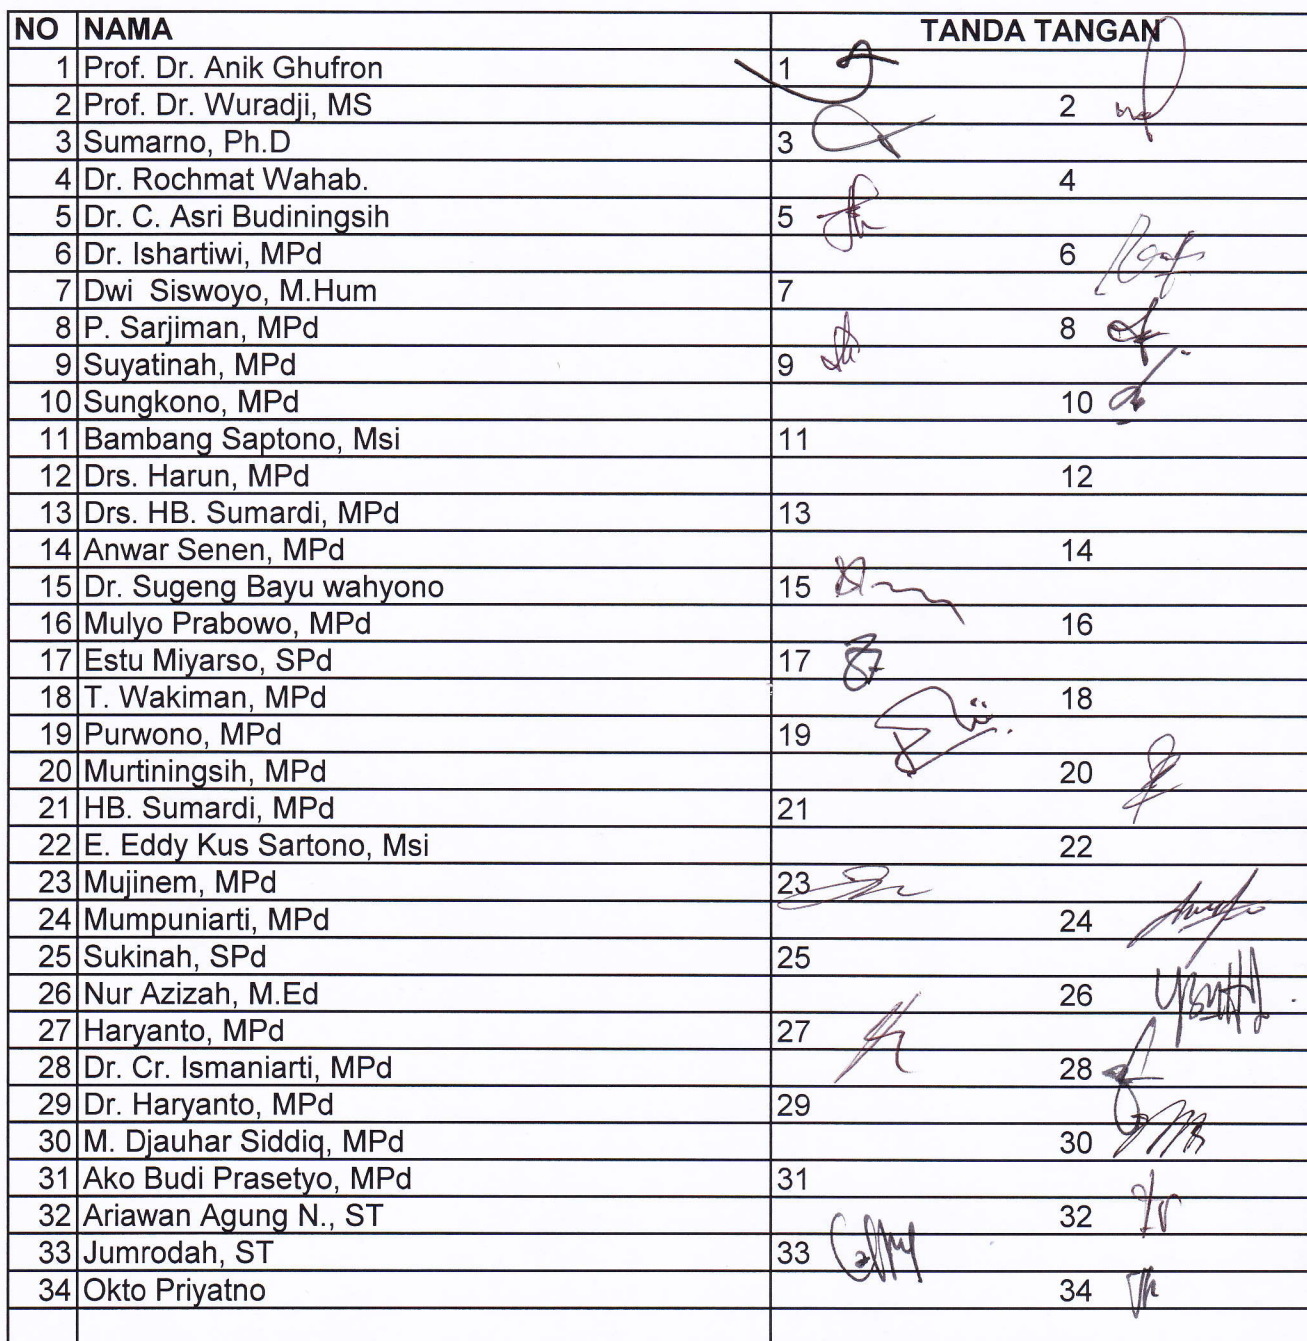 NO NAMA TANDA TANGAN
1 Prof. Dr. Anik Ghufron 1
2 Prof. Dr. Wuradji, MS 2
3 Sumarno, Ph.D 3
4 Dr. Rochmat Wahab. 4
5 Dr. C. Asri Budiningsih 5
6 Dr. Ishartiwi, MPd 6
7 Dwi  Siswoyo, M.Hum 7
8 P. Sarjiman, MPd 8
9 Suyatinah, MPd 9
10 Sungkono, MPd 10
11 Bambang Saptono, Msi 11
12 Drs. Harun, MPd 12
13 Drs. HB. Sumardi, MPd 13
14 Anwar Senen, MPd 14
15 Dr. Sugeng Bayu wahyono 15
16 Mulyo Prabowo, MPd 16
17 Estu Miyarso, SPd 17
18 T. Wakiman, MPd 18
19 Purwono, MPd 19
20 Murtiningsih, MPd 20
21 HB. Sumardi, MPd 21
22 E. Eddy Kus Sartono, Msi 22
23 Mujinem, MPd 23
24 Mumpuniarti, MPd 24
25 Sukinah, SPd 25
26 Nur Azizah, M.Ed 26
27 Haryanto, MPd 27
28 Dr. Cr. Ismaniarti, MPd 28
29 Dr. Haryanto, MPd 29
30 M. Djauhar Siddiq, MPd 30
31 Ako Budi Prasetyo, MPd 31
32 Ariawan Agung N., ST 32
33 Jumrodah, ST 33
34 Okto Priyatno 34